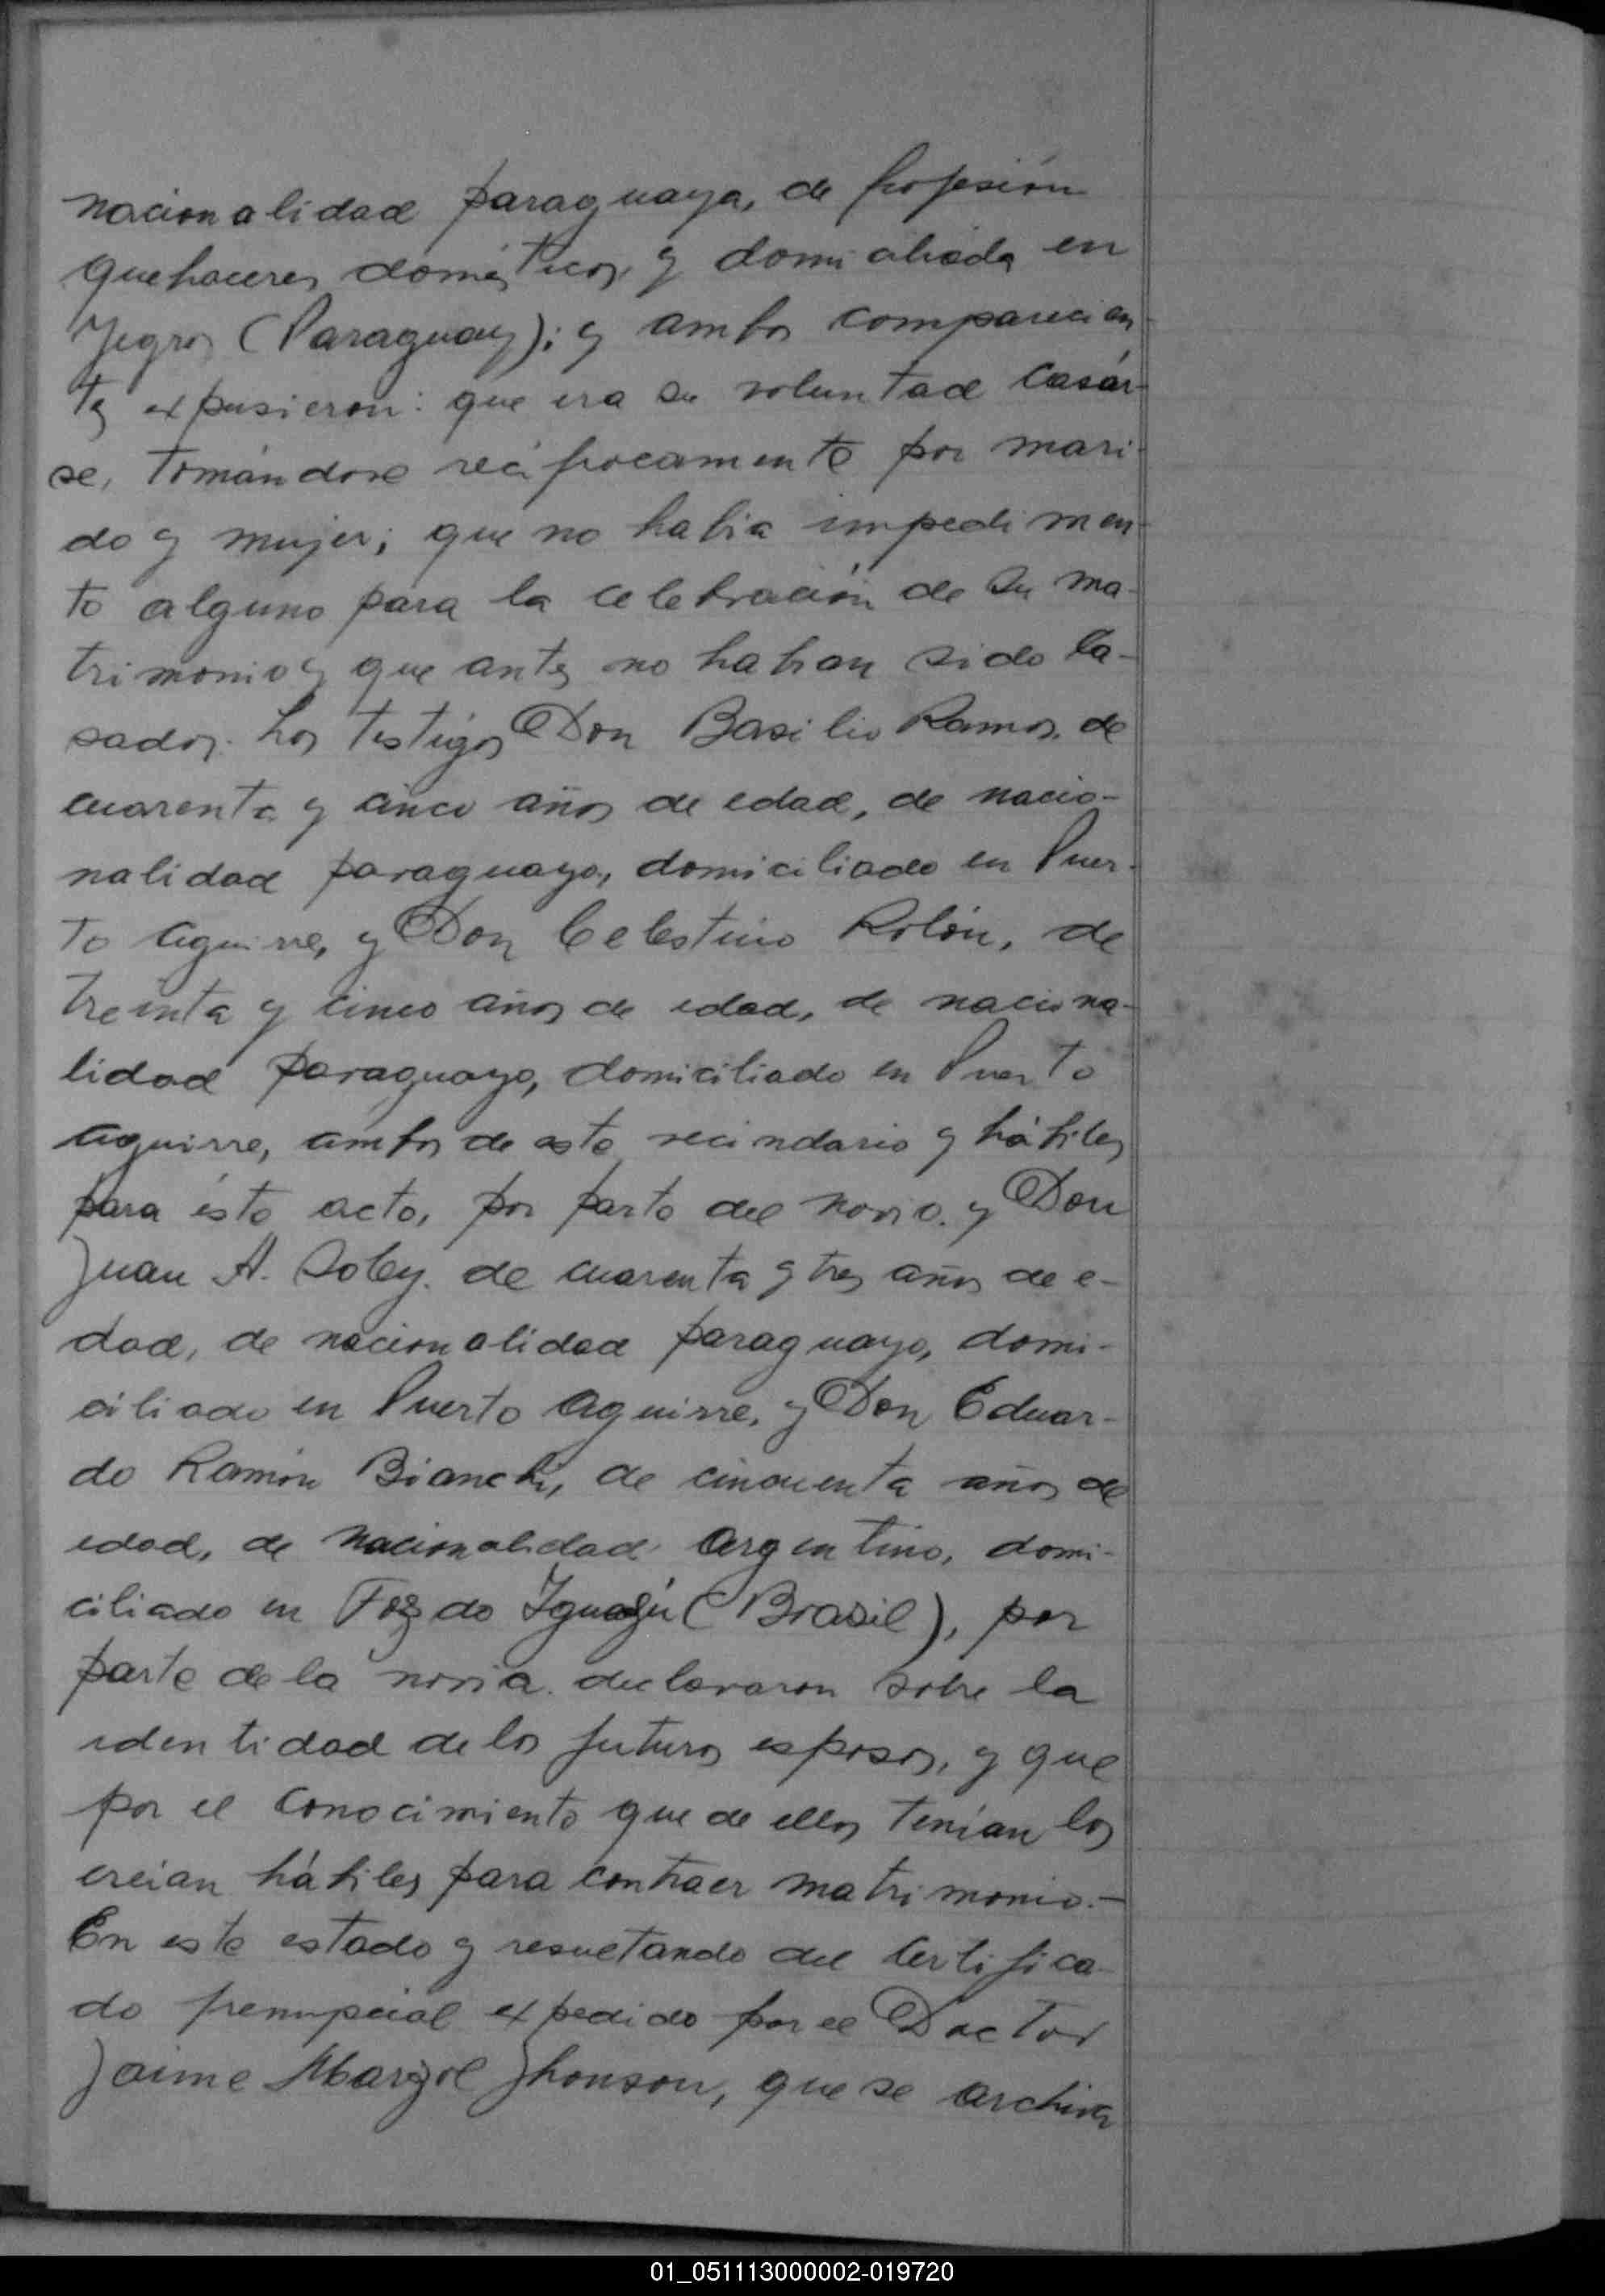 nacionalidad paraguaya, de profesión
quehaceres domésticos, y domiciliada en
Yegros (Paraguay); y ambos comparecien-
tes expusieron: que era su voluntad casár-
se, tomándose recíprocamente por mari-
do y mujer; que no habia impedimen-
to alguno para la celebración de su ma-
trimonio y que antes no habian sido ca-
sados. Los testigos Don Basilio Ramos, de
cuarenta y cinco años de edad, de nacio-
nalidad paraguayo, domiciliado en Puer-
to Aguirre, y Don Celestino Rolón, de
treinta y cinco años de edad, de naciona-
lidad paraguayo, domiciliado en Puerto
Aguirre, ambos de este vecindario y hábiles
para éste acto, por parte del novio. y Don
Juan A. Soley. de cuarenta y tres años de e-
dad, de nacionalidad paraguayo, domi-
ciliado en Puerto Aguirre, y Don Eduar-
do Ramón Bianchi, de cincuenta años de
edad, de nacionalidad Argentino, domi-
ciliado en Foz do Iguazú (Brasil), por
parte de la novia. declararon sobre la
identidad de los futuros esposos, y que
por el conocimiento que de ellos tenían los
creian hábiles para contraer matrimonio.-
En este estado y resultando del certifica-
do prenupcial expedido por el Doctor
Jaime Jhonson, que se archiva
01_051113000002-019720